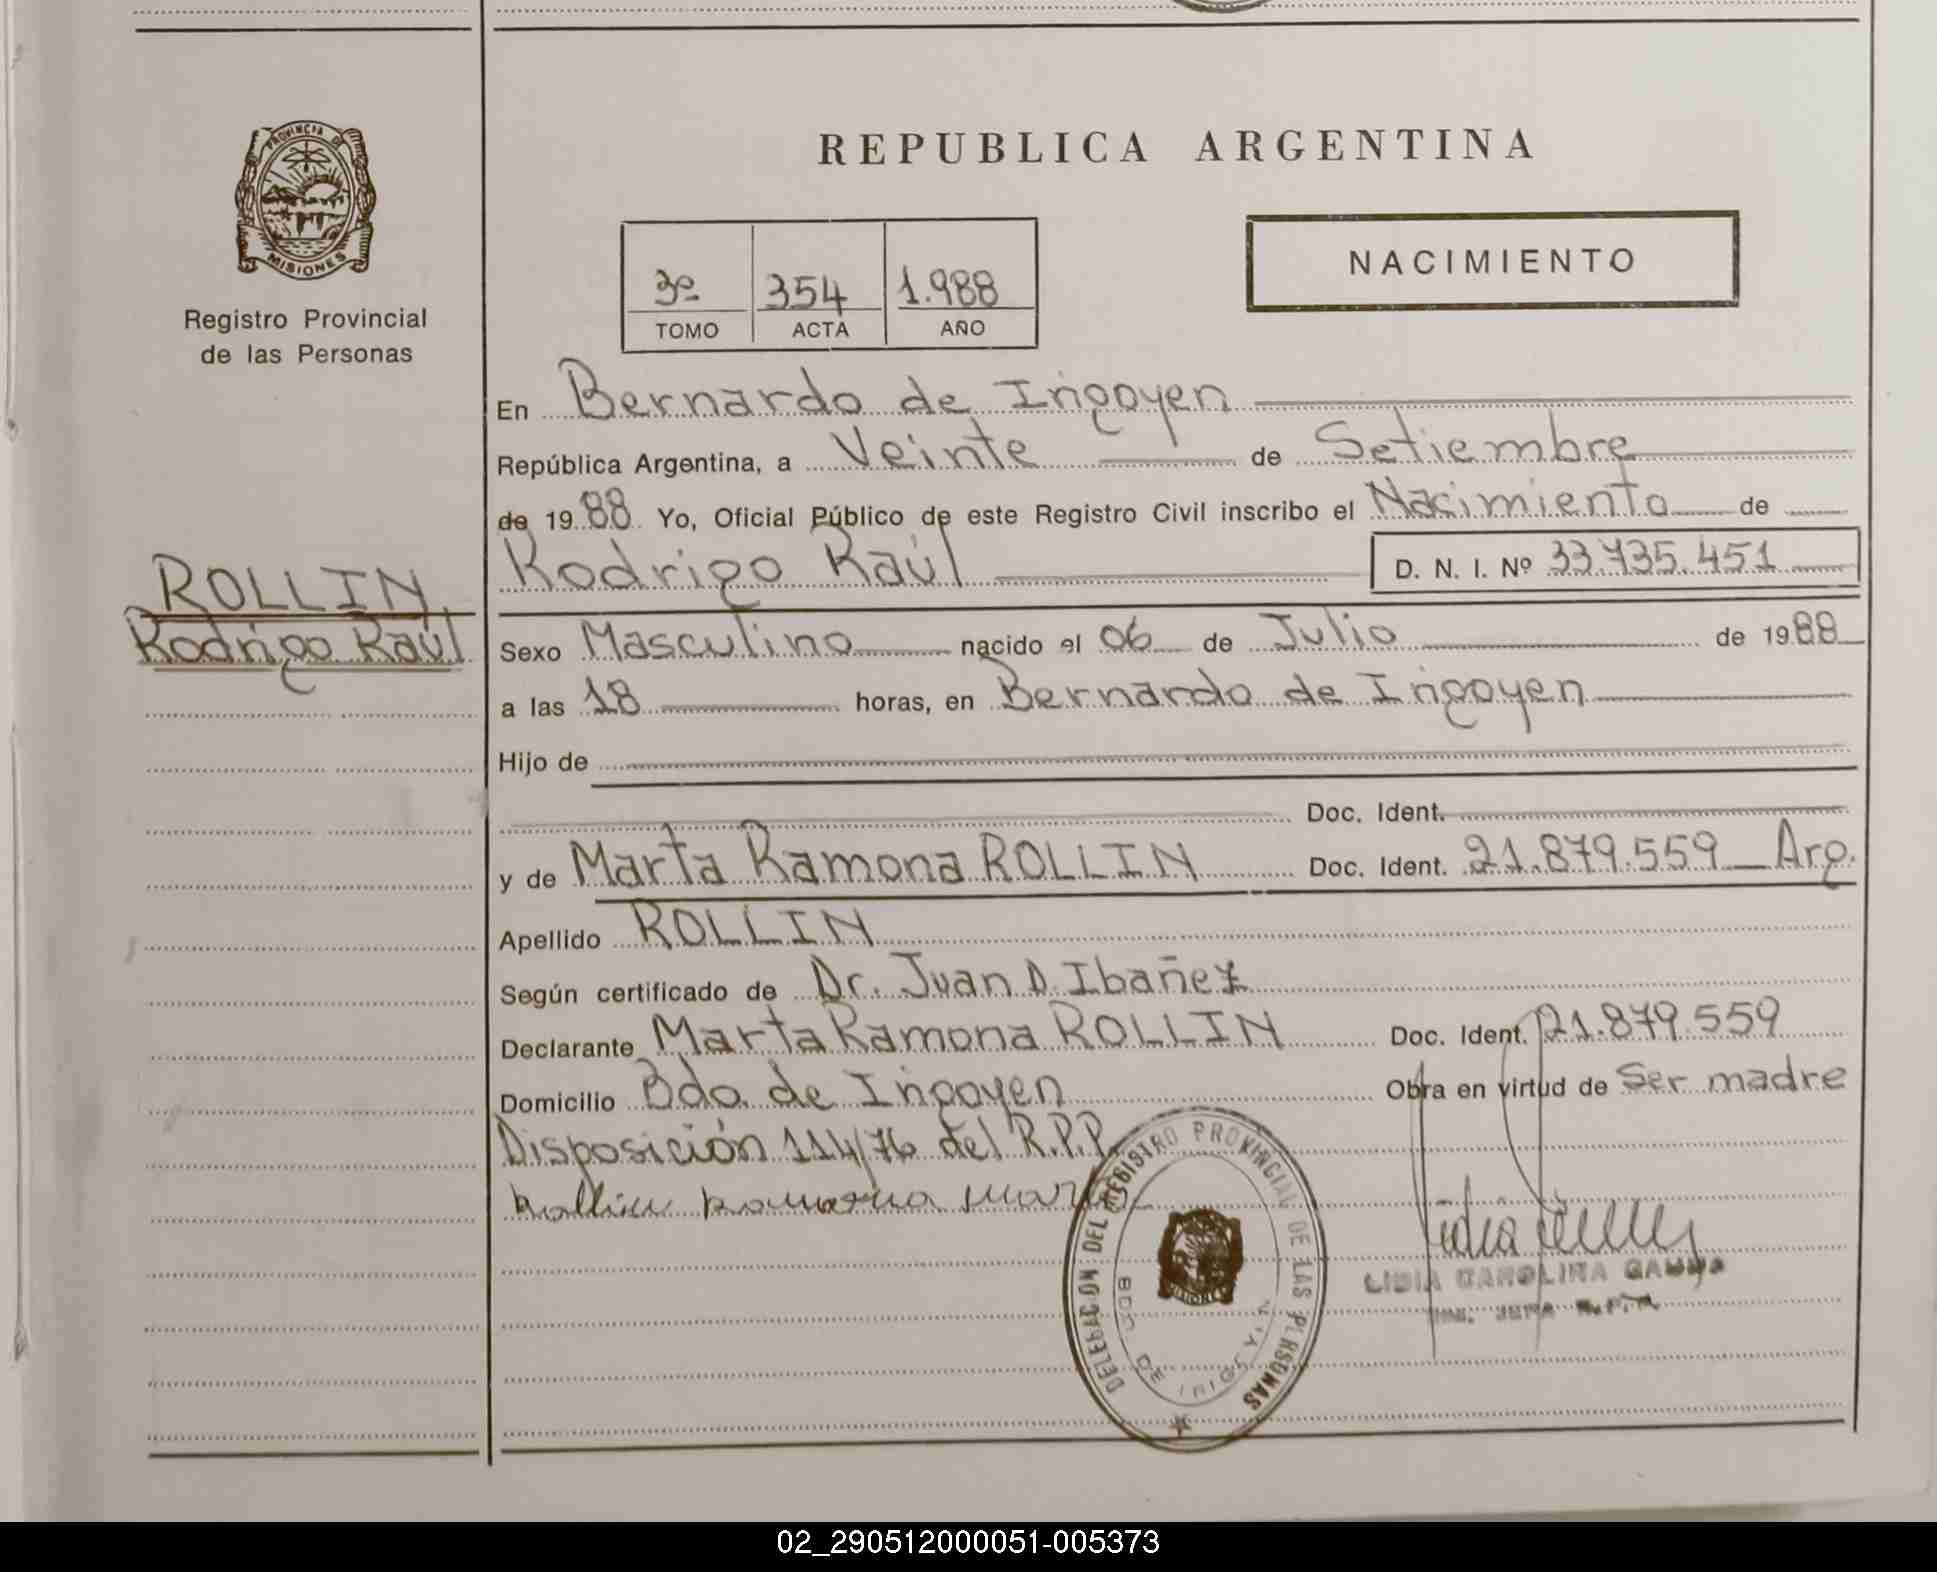 PROVINCIA DE
MISIONES
Registro Provincial
de las Personas
ROLLIN
Rodrigo Raúl
REPUBLICA ARGENTINA
3º 354 1.988
TOMO ACTA AÑO
NACIMIENTO
En Bernardo de Irigoyen
República Argentina, a Veinte de Setiembre
de 1988 Yo, Oficial Público de este Registro Civil inscribo el Nacimiento de
Rodrigo Raúl D. N. I. Nº 33.735.451
Sexo Masculino nacido el 06 de Julio de 1988
a las 18 horas, en Bernardo de Irigoyen
Hijo de
Doc. Ident.
y de Marta Ramona ROLLIN Doc. Ident. 21.879.559 Arg.
Apellido ROLLIN
Según certificado de Dr. Juan D. Ibañez
Declarante Marta Ramona ROLLIN Doc. Ident. 21.879.559
Domicilio Bdo. de Irigoyen Obra en virtud de Ser madre
Disposición 114/76 del R.P.P.
Rollin Ramona Marta
DELEGACION DEL REGISTRO PROVINCIAL DE LAS PERSONAS
BDO. DE IRIGOYEN
LIDIA CAROLINA
02_290512000051-005373